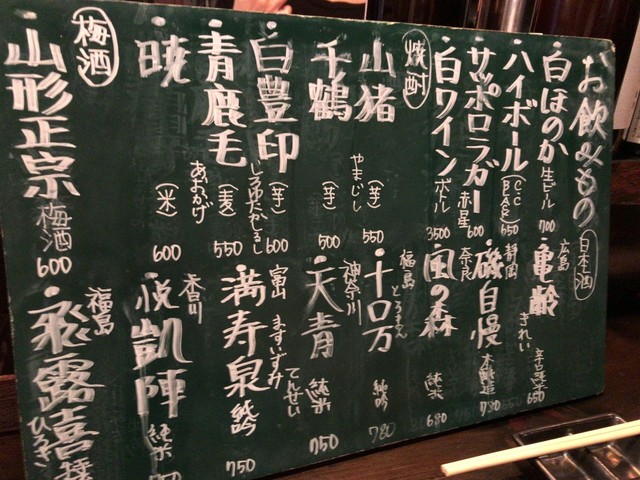 お飲みもの
白ほのか 生ビール 700
ハイボール (C.C BAR) 650
サッポロラガー 赤星 600
白ワイン ボトル 3500
焼酎
山猪 やまじし (芋) 550
千鶴 (芋) 500
白豊印 しろゆたかしるし (芋) 600
青鹿毛 あおかげ (麦) 550
暁 (米) 600
梅酒
山形正宗 梅酒 600
日本酒
広島 亀齢 きれい 辛口純米 650
静岡 磯自慢 本醸造 780
奈良 風の森 純米 680
福島 十口万 とろまん 純吟 780
神奈川 天青 てんせい 純米 750
富山 満寿泉 ますいずみ 純吟 750
香川 悦凱陣 純米
福島 飛露喜 ひろき